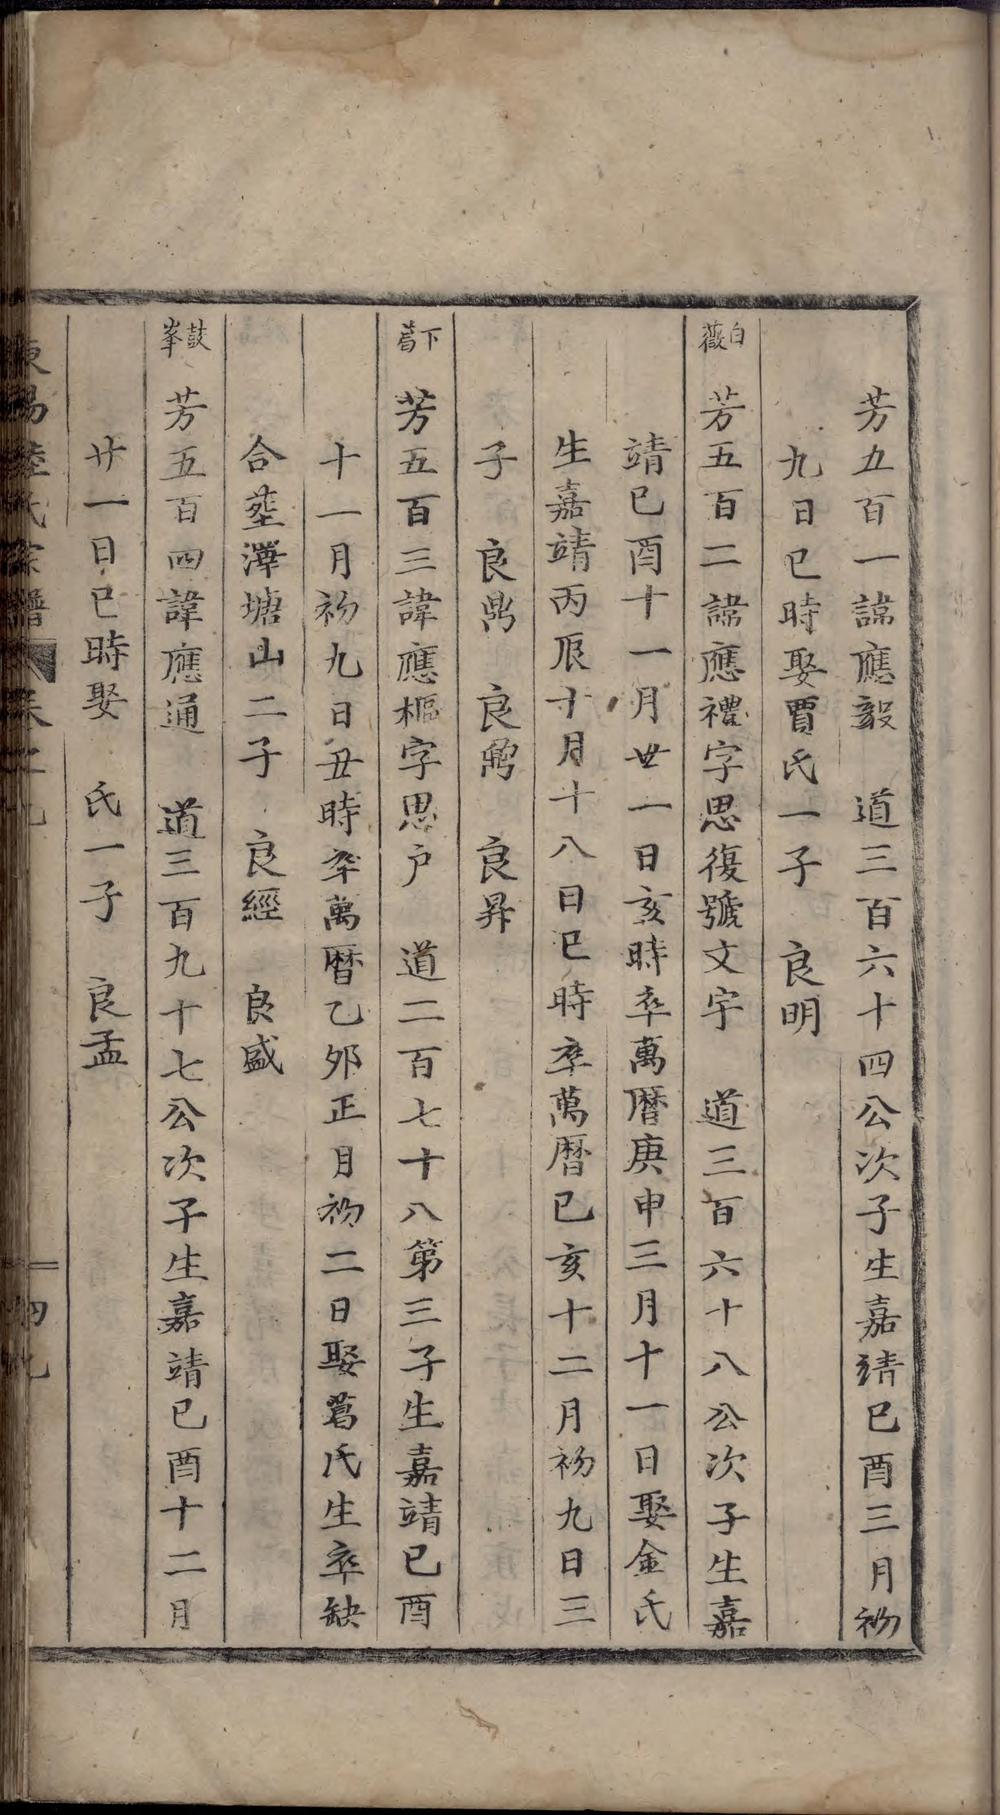 芳五百一諱應毅　道三百六十四公次子生嘉靖已酉三月初
九日巳時娶賈氏一子　良明
白薇　芳五百二諱應禮字思復號文宇　道三百六十八公次子生嘉
靖已酉十一月廿一日亥時卒萬曆庚申三月十一日娶金氏
生嘉靖丙辰十月十八日巳時卒萬曆已亥十二月初九日三
子　良鼎　良鼐　良昇
下葛　芳五百三諱應樞字思户　道二百七十八第三子生嘉靖已酉
十一月初九日丑時卒萬曆乙夘正月初二日娶葛氏生卒缺
合塟澤塘山二子　良經　良盛
鼓峯　芳五百四諱應通　道三百九十七公次子生嘉靖已酉十二月
廿一日巳時娶　氏一子　良孟
東陽 氏宗譜 卷之九 四九